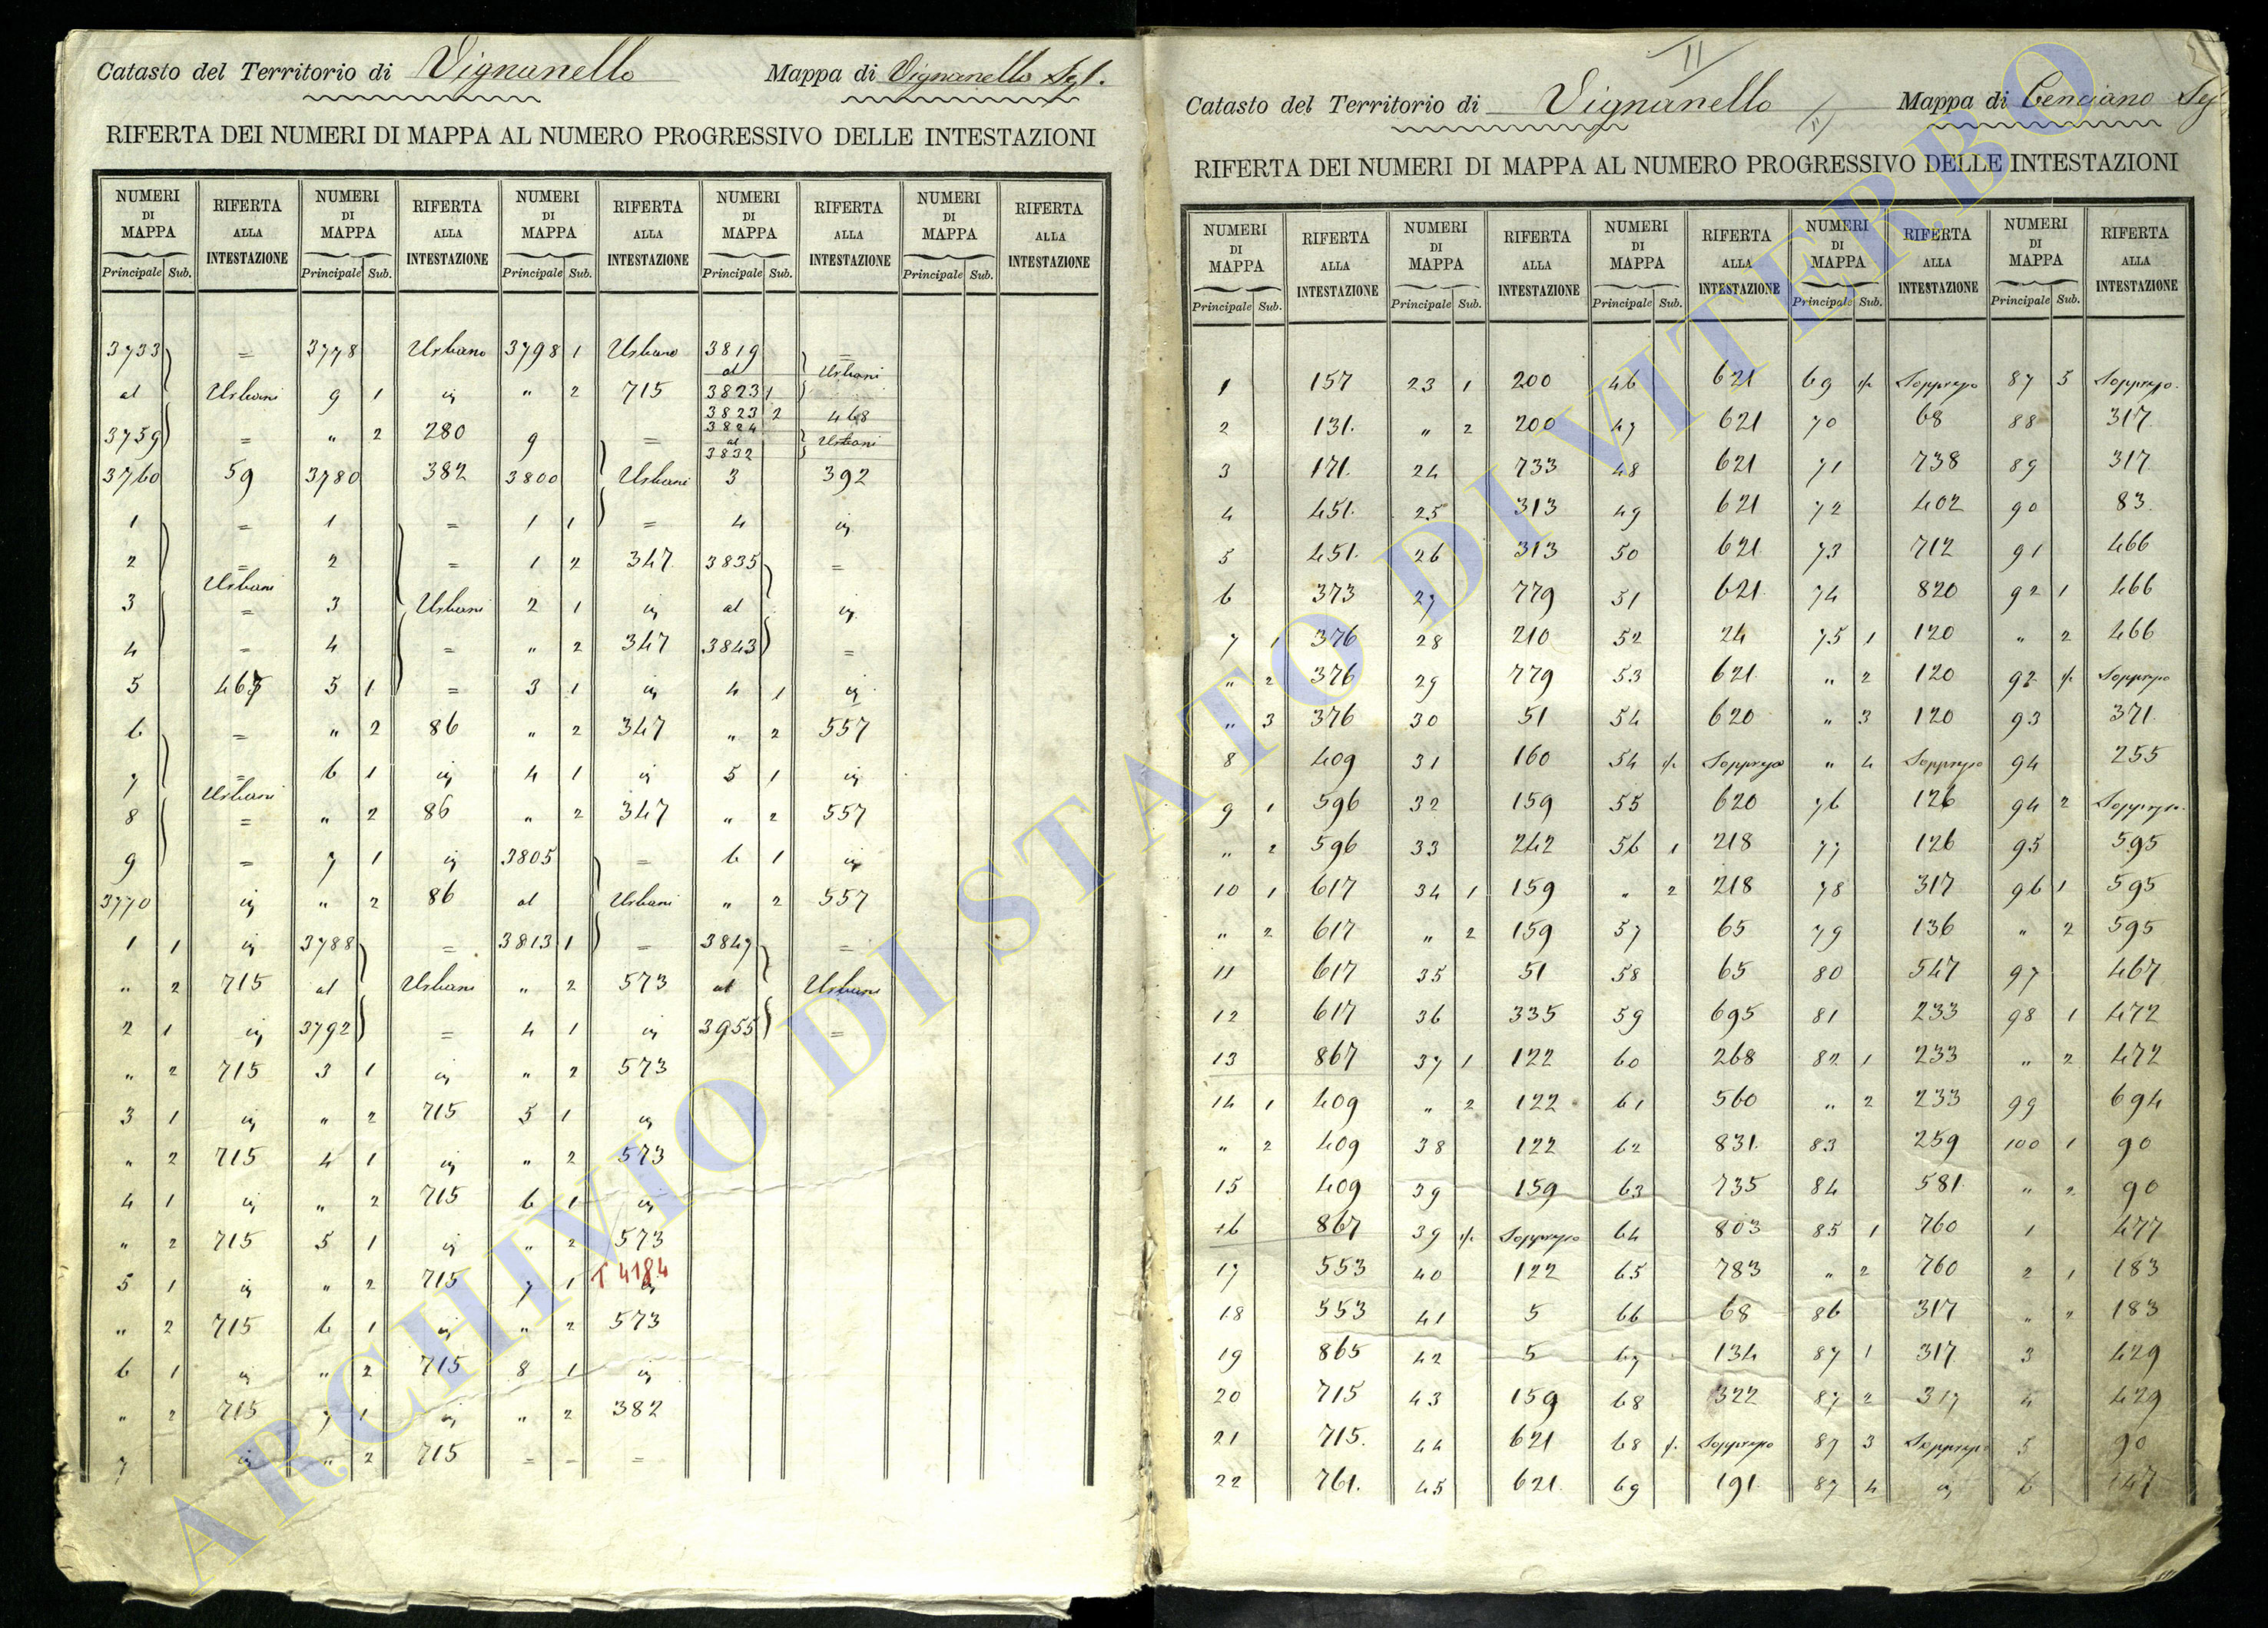 Catasto del Territorio di Vignanello Mappa di Vignanello
RIFERTA DEI NUMERI DI MAPPA AL NUMERO PROGRESSIVO DELLE INTESTAZIONI
NUMERI DI MAPPA RIFERTA ALLA INTESTAZIONE NUMERI DI MAPPA RIFERTA ALLA INTESTAZIONE NUMERI DI MAPPA RIFERTA ALLA INTESTAZIONE NUMERI DI MAPPA RIFERTA ALLA INTESTAZIONE NUMERI DI MAPPA RIFERTA ALLA INTESTAZIONE
Principale Sub. Principale Sub. Principale Sub. Principale Sub. Principale Sub.
3733 = 3778 Urbano 3798 1 Urbano 3819 =
al Urbani
al Urbani 9 1 " 2 715 3823 1
3823 2 468
3824
3759 = " 2 280 9 = al Urbani
3832
3760 59 3780 382 3800 Urbani 3 392
1 = 1 = 1 1 = 4
2 = 2 = 1 2 347 3835 =
Urbani
3 = 3 Urbani 2 1 al
4 = 4 = " 2 347 3843 =
5 5 1 = 3 1 4 1
6 = " 2 86 " 2 347 " 2 557
7 = 6 1 4 1 5 1
Urbani
8 = " 2 86 " 2 347 " 2 557
9 = 7 1 3805 = 6 1
3770 " 2 86 al Urbani " 2 557
1 1 3788 = 3813 1 = 3847 =
" 2 715 al Urbani " 2 573 al Urbani
2 1 3792 = 4 1 3955 =
" 2 715 3 1 " 2 573
3 1 " 2 715 5 1
" 2 715 4 1 " 2 573
4 1 " 2 715 6 1
" 2 715 5 1 " 2 573
T 4184
5 1 " 2 715 7 1
" 2 715 6 1 " 2 573
6 1 " 2 715 8 1
" 2 715 7 1 " 2 382
7 " 2 715 = = =
II
Catasto del Territorio di Vignanello Mappa di Cenciano
RIFERTA DEI NUMERI DI MAPPA AL NUMERO PROGRESSIVO DELLE INTESTAZIONI
NUMERI DI MAPPA RIFERTA ALLA INTESTAZIONE NUMERI DI MAPPA RIFERTA ALLA INTESTAZIONE NUMERI DI MAPPA RIFERTA ALLA INTESTAZIONE NUMERI DI MAPPA RIFERTA ALLA INTESTAZIONE NUMERI DI MAPPA RIFERTA ALLA INTESTAZIONE
Principale Sub. Principale Sub. Principale Sub. Principale Sub. Principale Sub.
1 157 23 1 200 46 621 69 Soppresso 87 5 Soppresso
2 131. " 2 200 47 621 70 68 88 317.
3 171. 24 733 48 621 71 738 89 317
4 451. 25 313 49 621 72 402 90 83.
5 451. 26 313 50 621 73 712 91 466
6 373 27 779 51 621. 74 820 92 1 466
7 1 376 28 210 52 24 75 1 120 " 2 466
" 2 376 29 779 53 621. " 2 120 92 Soppresso
" 3 376 30 51 54 620 " 3 120 93 371.
8 409 31 160 54 Soppresso " 4 Soppresso 94 255
9 1 596 32 159 55 620 76 126 94 2 Soppresso
" 2 596 33 242 56 1 218 77 126 95 595
10 1 617 34 1 159 " 2 218 78 317 96 1 595
" 2 617 " 2 159 57 65 79 136 " 2 595
11 617 35 51 58 65 80 547 97 467
12 617 36 335 59 695 81 233 98 1 472
13 867 37 1 122 60 268 82 1 233 " 2 472
14 1 409 " 2 122 61 560 " 2 233 99 694
" 2 409 38 122 62 831. 83 259 100 1 90
15 409 39 159 63 735 84 581. " 2 90
16 867 39 Soppresso 64 803 85 1 760 1 477
17 553 40 122 65 783 " 2 760 2 1 183
18 553 41 5 66 68 86 317 " 2 183
19 865 42 5 67 134 87 1 317 3 429
20 715 43 159 68 322 87 2 317 4 429
21 715. 44 621 68 Soppresso 87 3 Soppresso 5 90
22 761. 45 621. 69 191. 87 4 6 147
ARCHIVIO DI STATO DI VITERBO